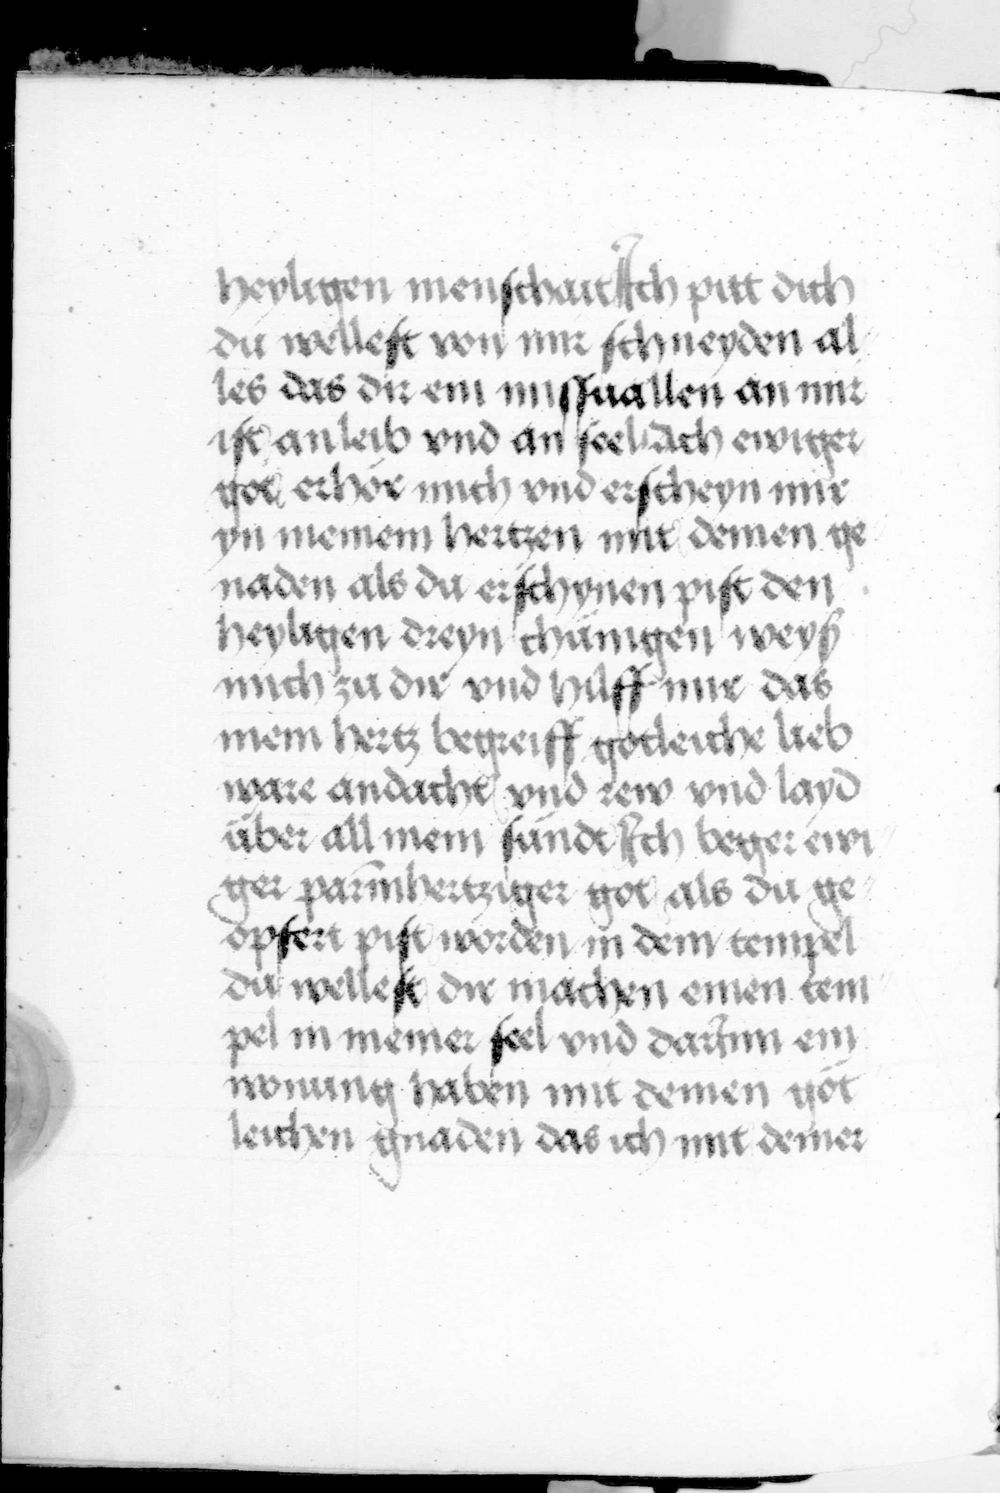 heyligen menschait Ich pitt dich
du wellest von mir schneyden al
les das dir ein missuallen an mir
ist an leib vnd an seel Ach ewiger
got erhör mich vnd erscheyn mir
yn meinem hertzen mit deinen ge
naden als du erschynen pist den
heyligen dreyn chünigen weyß
mich zu dir vnd hilff mir das
mein hertz begreiff götleiche lieb
ware andacht vnd rew vnd layd
über all mein sündt Ich beger ewi
ger parmhertziger got als du ge
opfert pist worden in dem tempel
du wellest dir machen einen tem
pel in meiner seel vnd darinn ein
wonung haben mit deinen göt
leichen gnaden das ich mit deiner